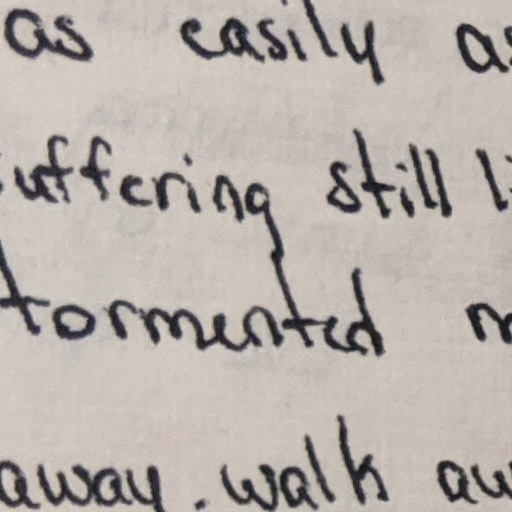 as easily as
uffering still li
tormented m
away. walk aw